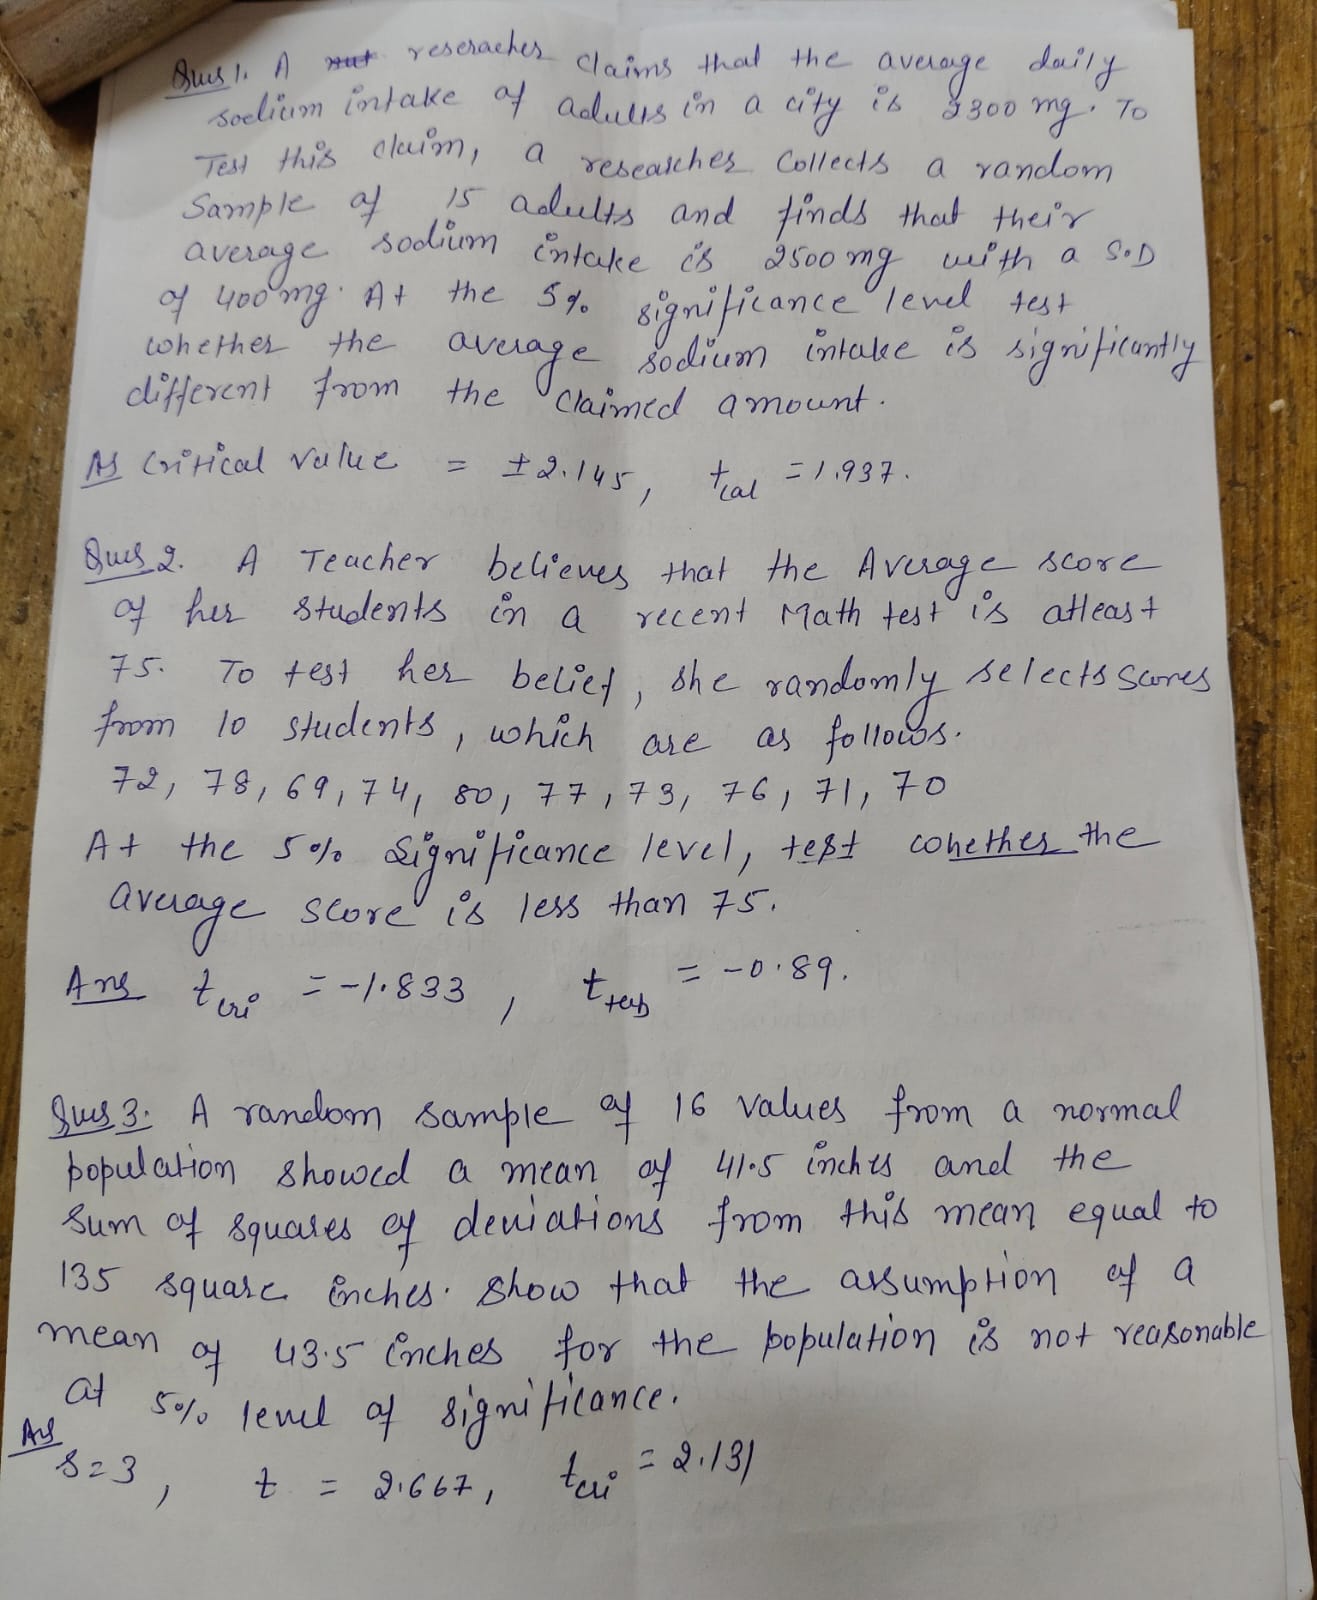 Ques 1. A reseracher claims that the average daily
sodium intake of adults in a city is 2300 mg. To
Test this claim, a researcher collects a random
Sample of 15 adults and finds that their
average sodium intake is 2500 mg with a S.D
of 400 mg. At the 5% significance level test
whether the average sodium intake is significantly
different from the claimed amount.
As Critical value = ±2.145, tcal = 1.937.
Ques 2. A Teacher believes that the Average score
of her students in a recent Math test is atleast
75. To test her belief, she randomly selects scores
from 10 students, which are as follows.
72, 78, 69, 74, 80, 77, 73, 76, 71, 70
At the 5% significance level, test whether the
average score is less than 75.
Ans tcri = -1.833, = -0.89.
Ques 3. A random sample of 16 values from a normal
population showed a mean of 41.5 inches and the
sum of squares of deviations from this mean equal to
135 square inches. Show that the assumption of a
mean of 43.5 inches for the population is not reasonable
at 5% level of significance.
Ans
s = 3, t = 2.667, tcri = 2.131